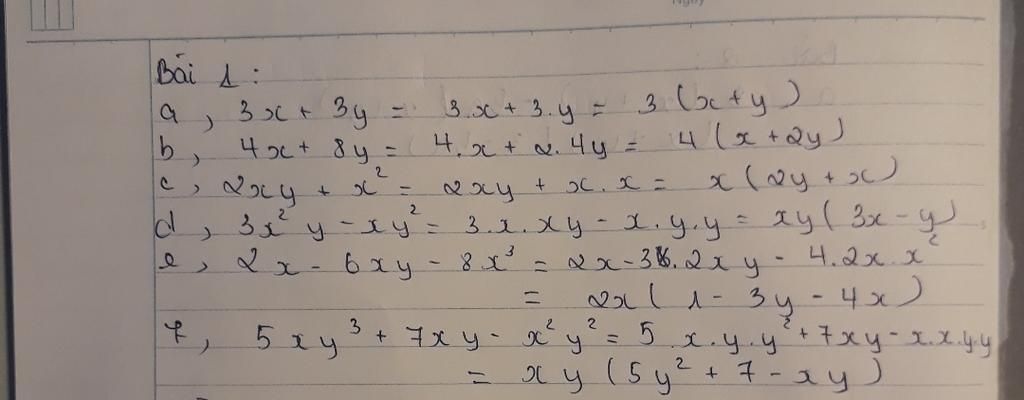 Bài 1:
a, 3x + 3y = 3.x + 3.y = 3(x+y)
b, 4x + 8y = 4.x + 2.4y = 4(x+2y)
c, 2xy + x² = 2xy + x.x = x(2y+x)
d, 3x²y - xy² = 3.x.xy - x.y.y = xy(3x-y)
e, 2x - 6xy - 8x³ = 2x-3.2xy - 4.2x.x²
= 2x(1-3y-4x)
f, 5xy³ + 7xy - x²y² = 5.x.y.y² + 7xy - x.x.y.y
= xy(5y² + 7 - xy)